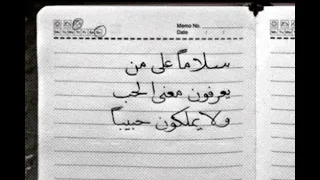 Memo No.
Date
سلاماً على من
يعرفون معنى الحب
ولا يملكون حبيباً